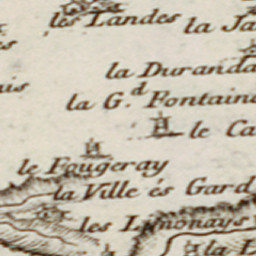 les Landes
la Ja
es
la Duranda
is
la G.d Fontain
le Ca
le Fougeray
la Ville és Gard
les Limonays
la